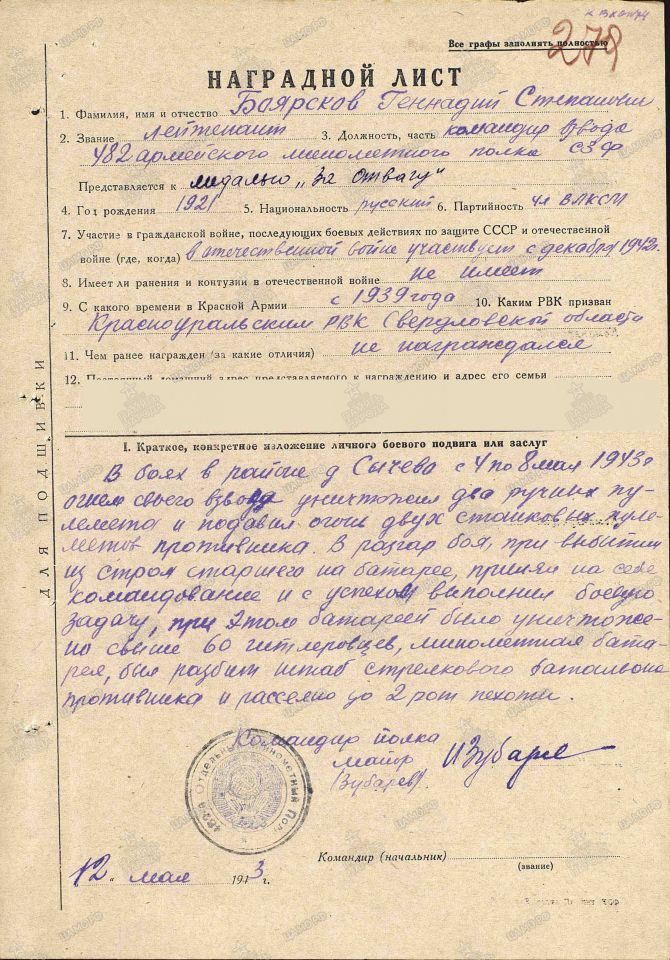 Все графы заполнять полностью
279
НАГРАДНОЙ ЛИСТ
1. Фамилия, имя и отчество Боярсков Геннадий Степанович
2. Звание лейтенант 3. Должность, часть командир взвода
482 армейского минометного полка СЗФ
Представляется к медалью „За отвагу"
4. Год рождения 1921 5. Национальность русский 6. Партийность чл ВЛКСМ
7. Участие в гражданской войне, последующих боевых действиях по защите СССР и отечественной
войне (где, когда) в отечественной войне участвует с декабря 1942г.
8. Имеет ли ранения и контузии в отечественной войне не имеет
9. С какого времени в Красной Армии с 1939 года 10. Каким РВК призван
Красноуральским РВК Свердловской области
11. Чем ранее награжден (за какие отличия) не награждался
12. Постоянный домашний адрес представляемого к награждению и адрес его семьи
ДЛЯ ПОДШИВКИ
I. Краткое, конкретное изложение личного боевого подвига или заслуг
В боях в районе д Сычево с 4 по 8 мая 1943г
огнем своего взвода уничтожил два ручных пу-
лемета и подавил огонь двух станковых пуле-
метов противника. В разгар боя, при выбытии
из строя старшего на батарее, принял на себя
командование и с успехом выполнил боевую
задачу, при этом батареей было уничтоже-
но свыше 60 гитлеровцев, минометная бата-
рея, был разбит штаб стрелкового батальона
противника и рассеяно до 2 рот пехоты.
Командир полка
майор
(Зубарев). ИЗубарев
482-й Отдельный Минометный Полк
Командир (начальник)
(звание)
"12" мая 1943 г.